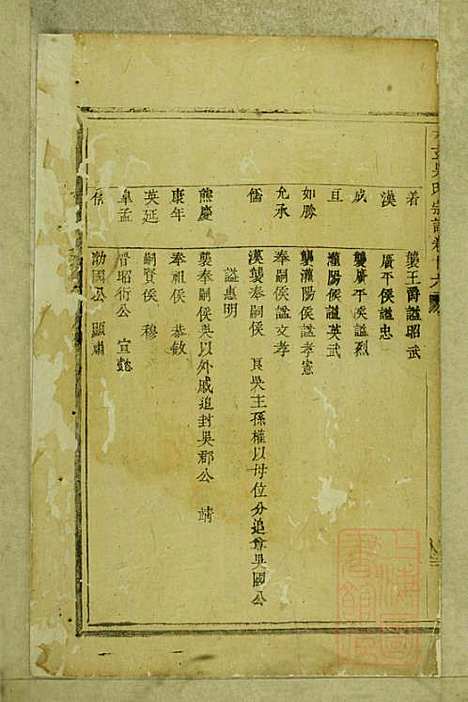 吳氏宗譜卷
着 襲王爵謚昭武
漢 廣平侯謚忠
成 襲廣平侯謚烈
旦 灈陽侯謚英武
如勝 襲灈陽侯謚孝憲
允承 奉嗣侯謚文孝
儒 漢襲奉嗣侯 吳主孫權以母位分追尊吳國公
謚惠明
熊慶 襲奉嗣侯吳以外戚追封吳郡公 靖
康年 奉祖侯 恭敏
英延 嗣賢侯 穆
阜孟 晉昭衍公 宣懿
渤國公 顯肅